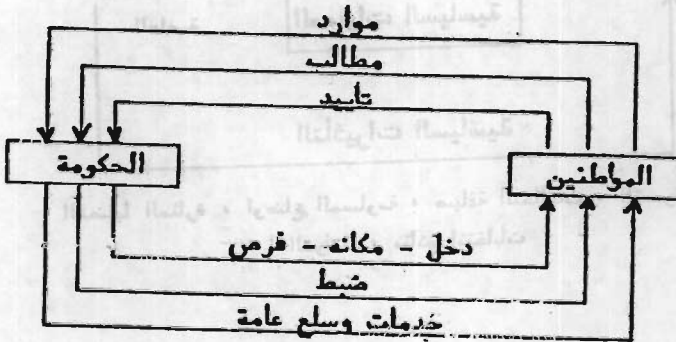 موارد
مطالب
تأييد
الحكومة
المواطنين
دخل - مكانه - فرص
ضبط
خدمات وسلع عامة